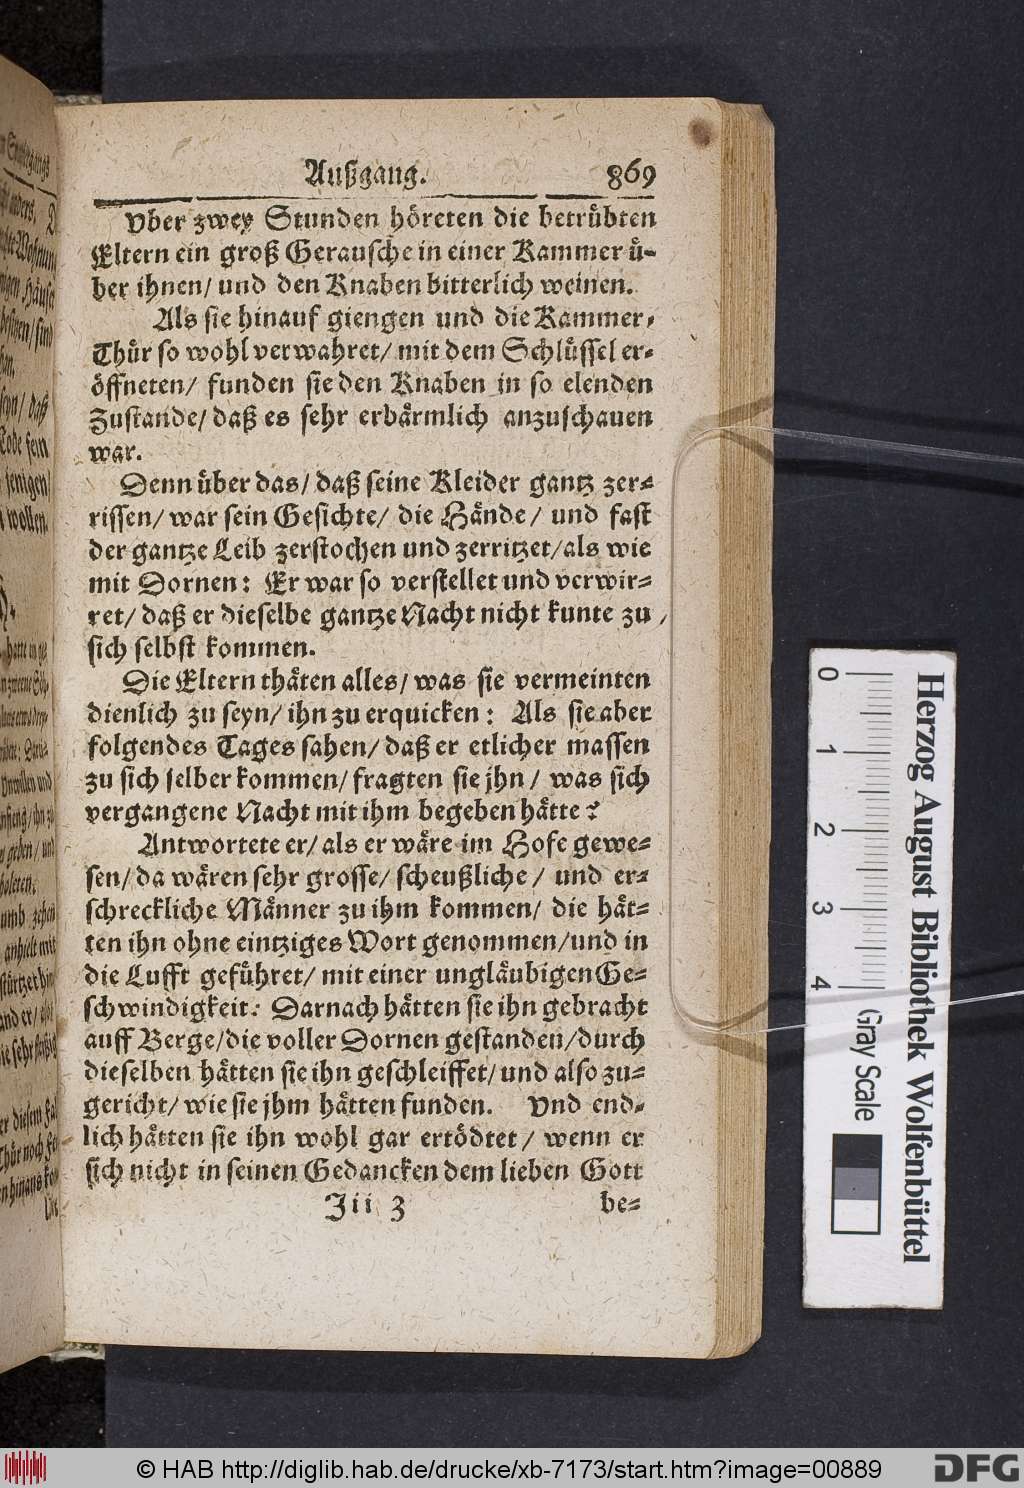 Außgang. 869
Vber zwey Stunden höreten die betrübten
Eltern ein groß Gerausche in einer Kammer ü-
ber ihnen/ und den Knaben bitterlich weinen.
Als sie hinauf giengen und die Kammer-
Thür so wohl verwahret/ mit dem Schlüssel er-
öffneten/ funden sie den Knaben in so elenden
Zustande/ daß es sehr erbärmlich anzuschauen
war.
Denn über das/ daß seine Kleider gantz zer-
rissen/ war sein Gesichte/ die Hände/ und fast
der gantze Leib zerstochen und zerritzet/ als wie
mit Dornen: Er war so verstellet und verwir-
ret/ daß er dieselbe gantze Nacht nicht kunte zu
sich selbst kommen.
Die Eltern thäten alles/ was sie vermeinten
dienlich zu seyn/ ihn zu erquicken: Als sie aber
folgendes Tages sahen/ daß er etlicher massen
zu sich selber kommen/ fragten sie jhn/ was sich
vergangene Nacht mit ihm begeben hätte?
Antwortete er/ als er wäre im Hofe gewe-
sen/ da wären sehr grosse/ scheußliche/ und er-
schreckliche Männer zu ihm kommen/ die hät-
ten ihn ohne eintziges Wort genommen/ und in
die Lufft geführet/ mit einer ungläubigen Ge-
schwindigkeit: Darnach hätten sie ihn gebracht
auff Berge/ die voller Dornen gestanden/ durch
dieselben hätten sie ihn geschleiffet/ und also zu-
gericht/ wie sie jhm hätten funden. Vnd end-
lich hätten sie ihn wohl gar ertödtet/ wenn er
sich nicht in seinen Gedancken dem lieben Gott
Jii 3 be-
Herzog August Bibliothek Wolfenbüttel
0 1 2 3 4 Gray Scale
© HAB http://diglib.hab.de/drucke/xb-7173/start.htm?image=00889
DFG